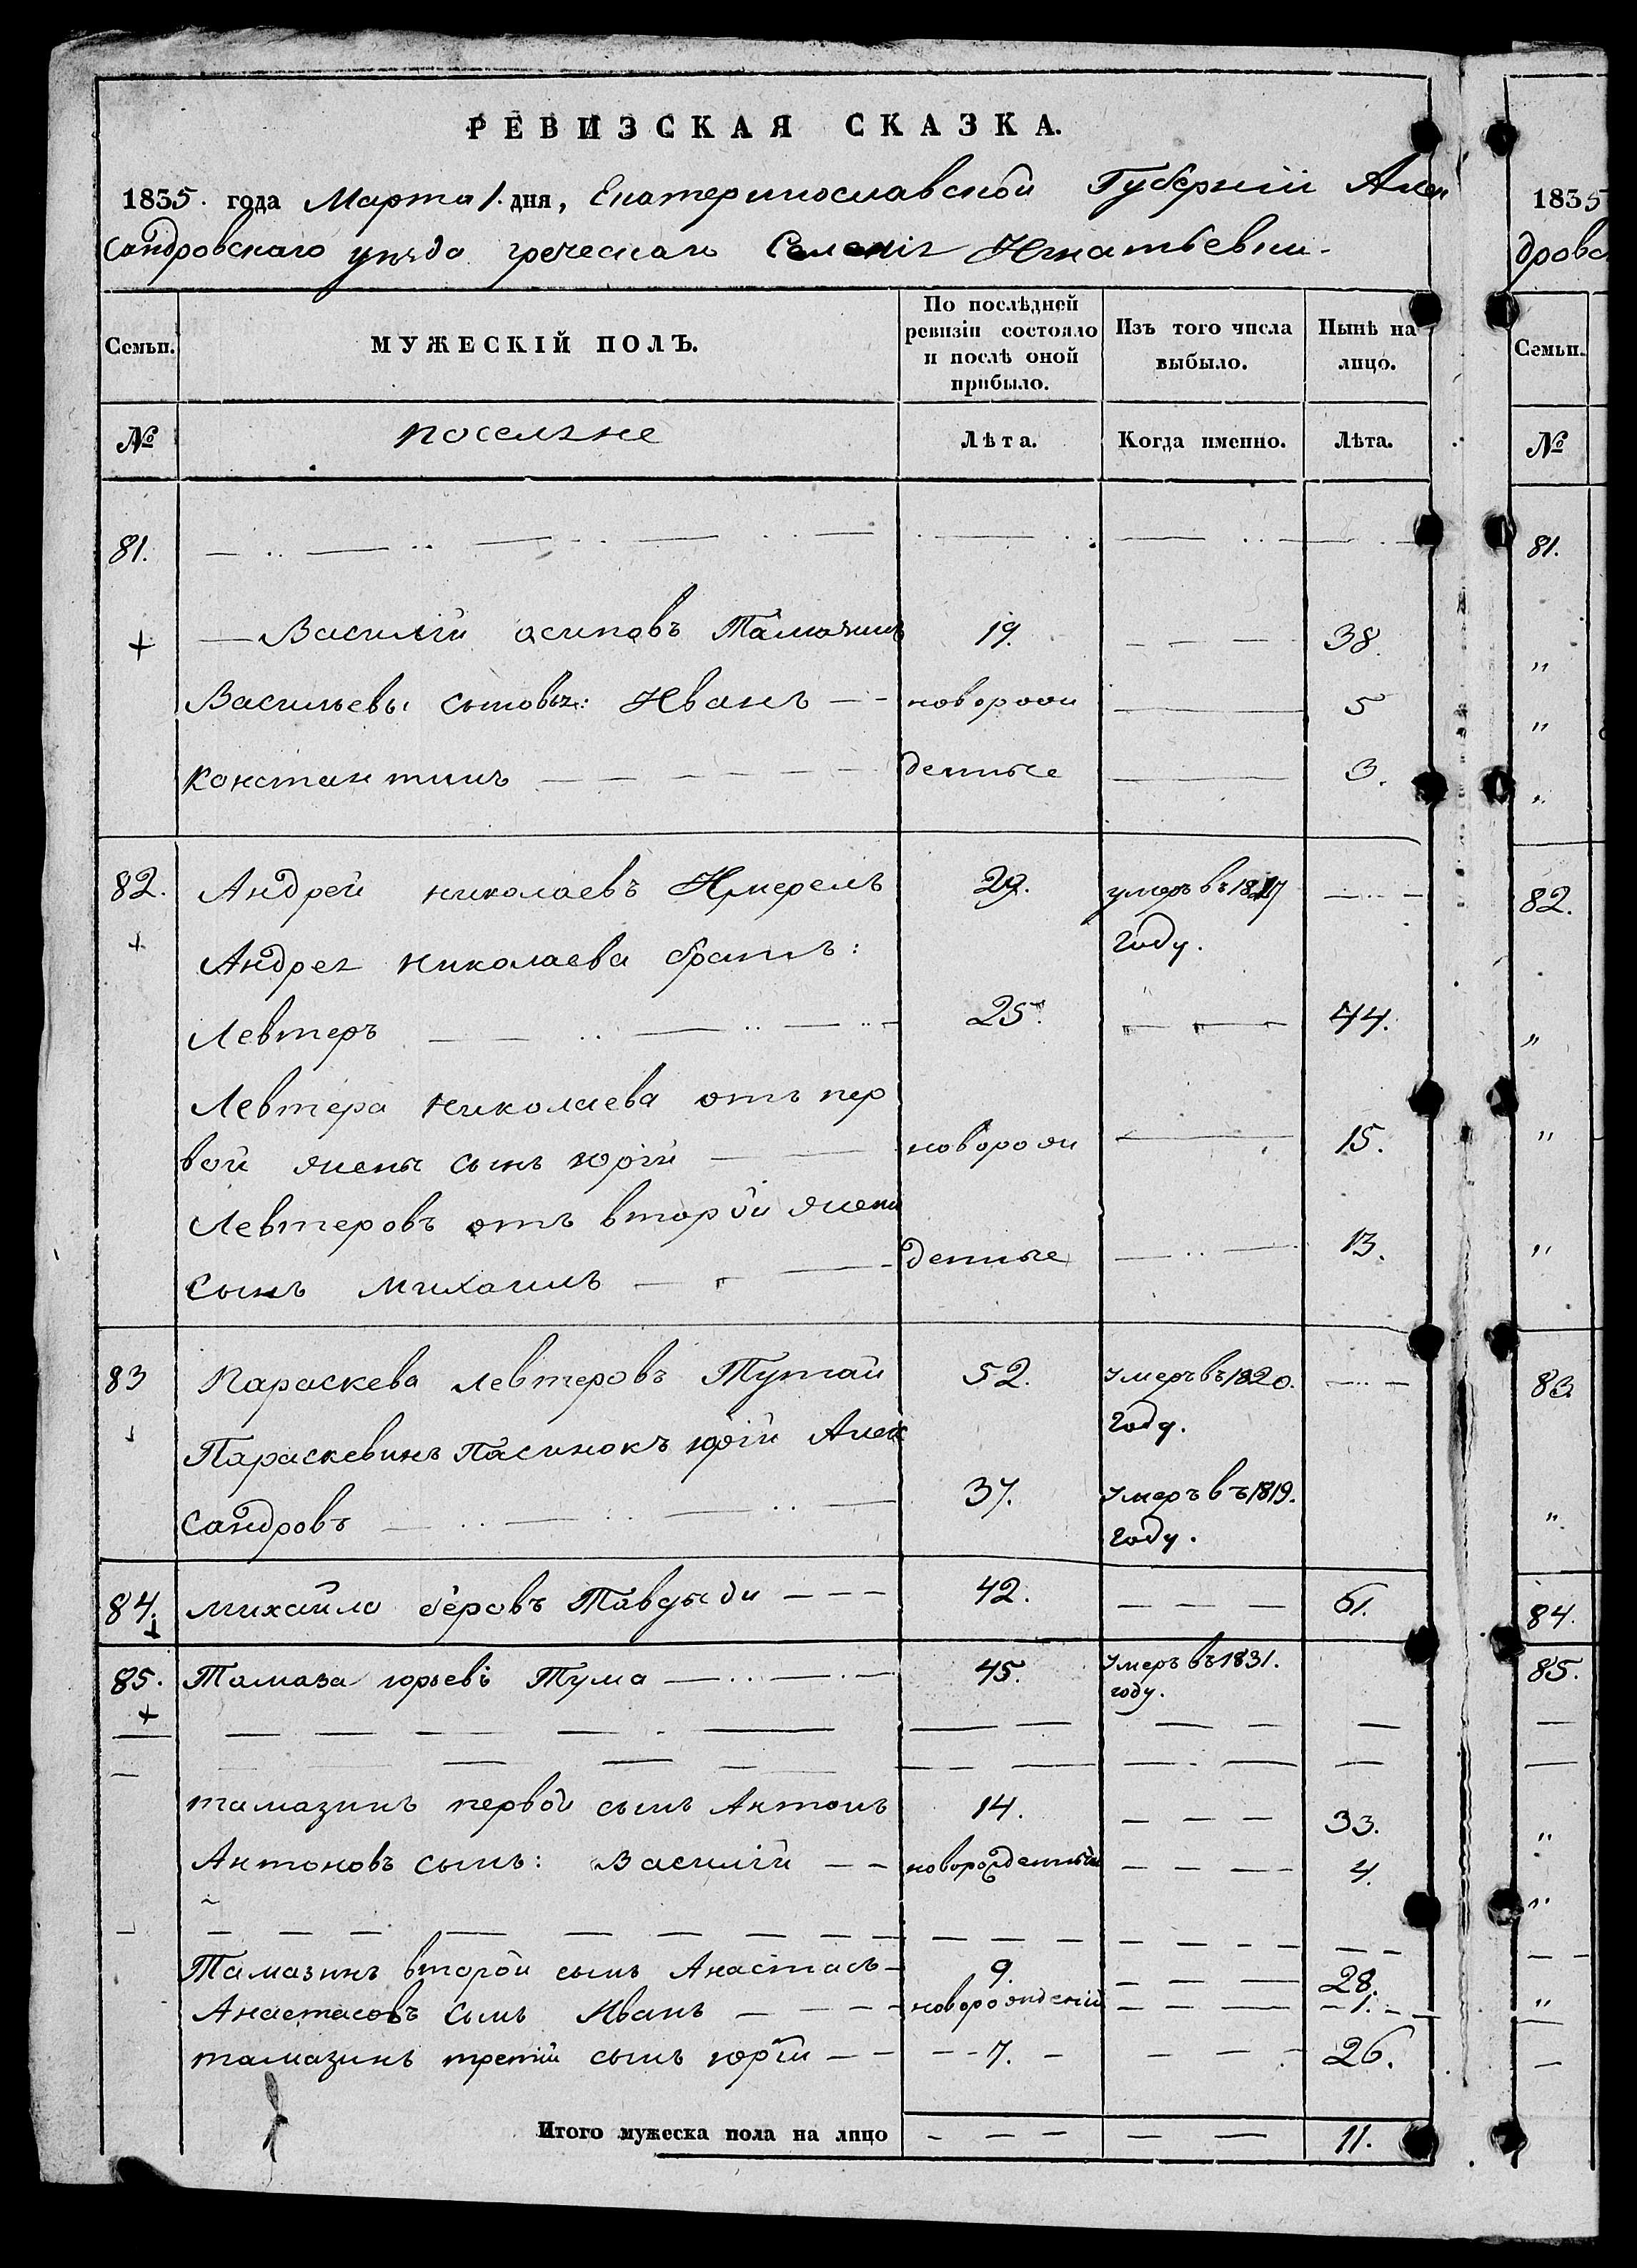 РЕВИЗСКАЯ СКАЗКА.
1835. года Марта 1. дня, Екатеринославской Губерніи Алек
сандровскаго уѣзда греческаго Селенія Игнатьевки.
Семьи. МУЖЕСКІЙ ПОЛЪ. По послѣдней ревизіи состояло и послѣ оной прибыло. Изъ того числа выбыло. Нынѣ на лицо.
№ поселяне Лѣта. Когда именно. Лѣта.
81.
Василій осиповъ 19. 38.
Васильевы сыновья: Иванъ новорож 5
Константинъ денные 3.
82. Андрей николаевъ 29. умеръ въ
году.
Андрея николаева братъ:
Левтеръ 25. 44.
Левтера николаева отъ пер
вой жены сынъ юрій новорож 15.
Левтеровъ отъ второй жены
сынъ михаилъ денные 13.
83 Параскева левтеровъ 52. умеръ въ 1820.
году.
Параскевинъ Пасинокъ юрій Алек
сандровъ 37. умеръ въ 1819.
году.
84. михайло 42. 61.
85. Тамаза юрьевъ Тума 45. умеръ въ 1831.
году.
тамазинъ первой сынъ Антонъ 14. 33.
Антоновъ сынъ: Василій новорожденный 4.
Тамазинъ второй сынъ Анастасъ 9. 28.
Анастасовъ сынъ Иванъ 1.
тамазинъ третій сынъ юрій 7. 26.
Итого мужеска пола на лицо 11.
1835
дровс
Семьи.
№
81.
82.
83
84.
85.